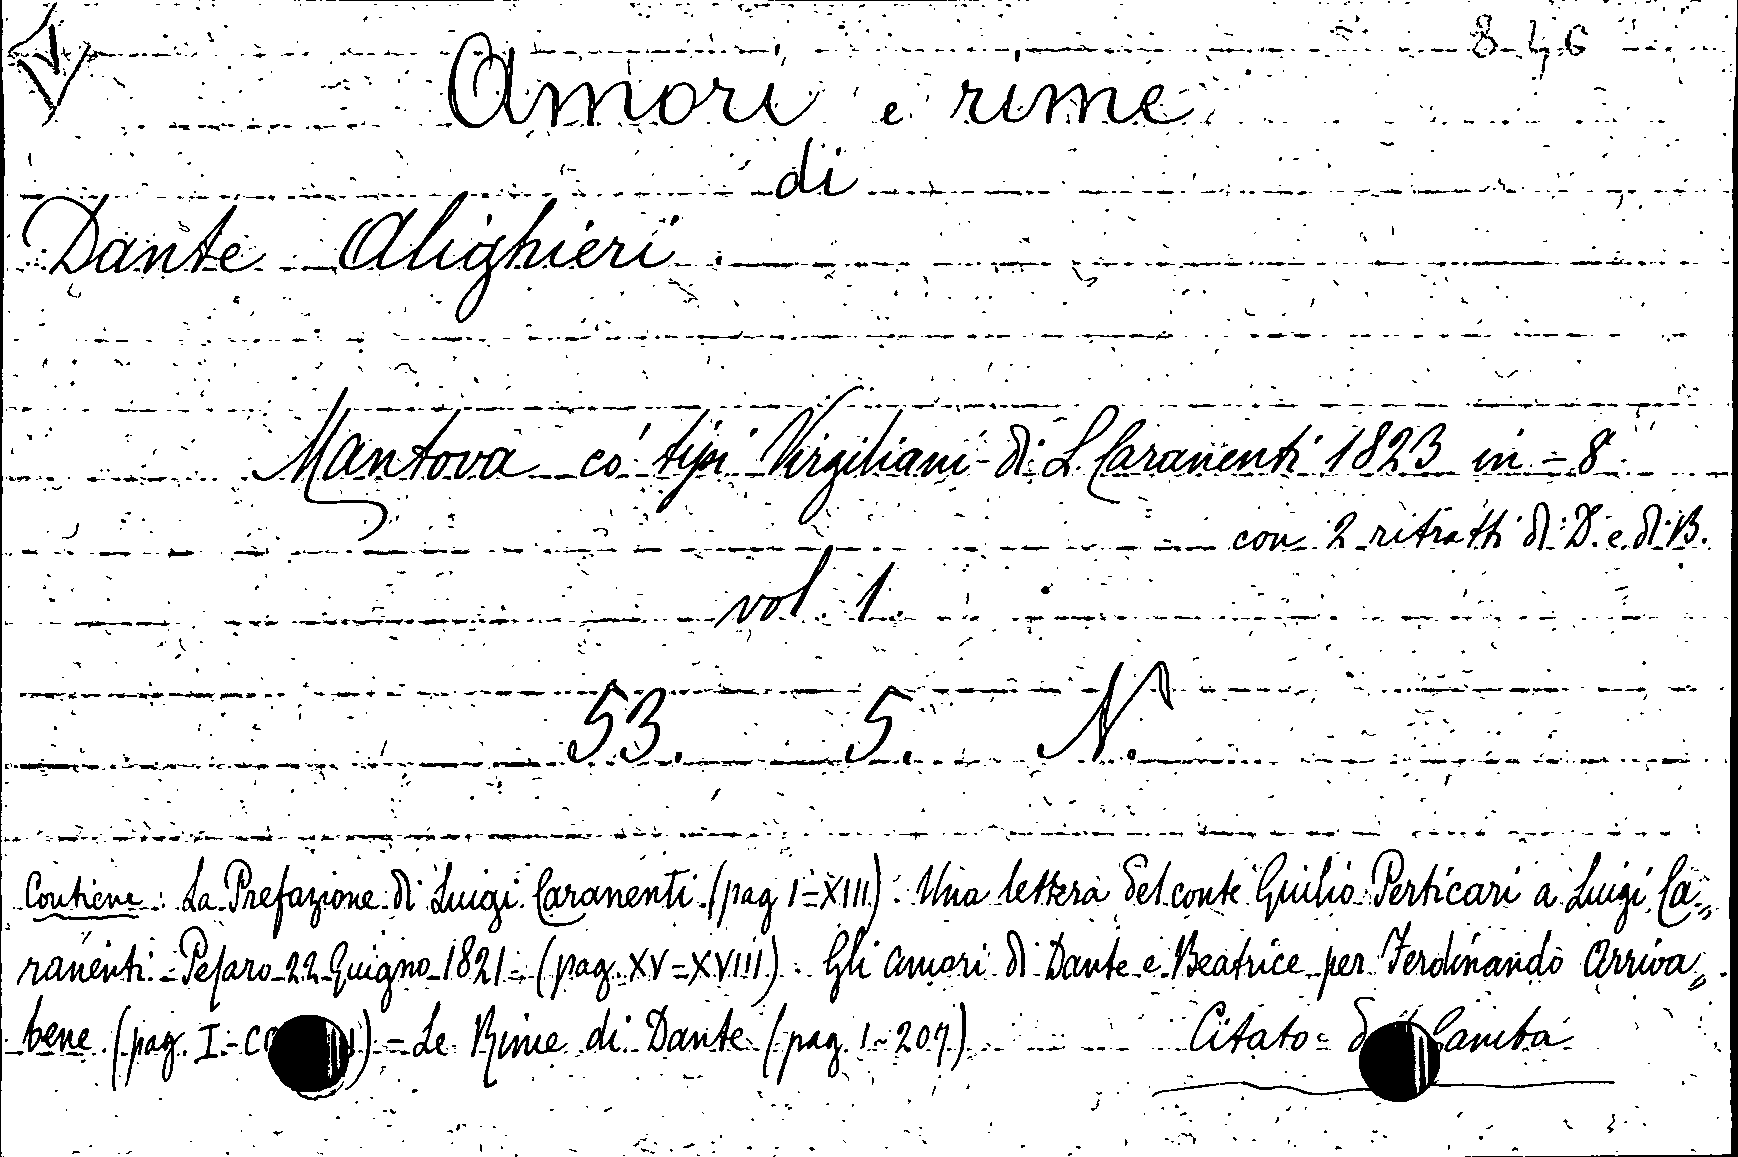 846
Amori e rime
di
Dante Alighieri
Mantova co' tipi Virgiliani di L. Caranenti 1823 in-8
con 2 ritratti di D. e di B.
vol. 1.
53. 5. N.
Contiene: La Prefazione di Luigi Caranenti (pag I=XIII). Una lettera del conte Giulio Perticari a Luigi Ca„
ranenti - Pesaro 22 Guigno 1821 - (pag. XV=XVIII). Gli amori di Dante e Beatrice per Ferdinando Arriva„
bene (pag. I-CC ) - Le Rime di Dante (pag. 1-207) Citato = Gamba